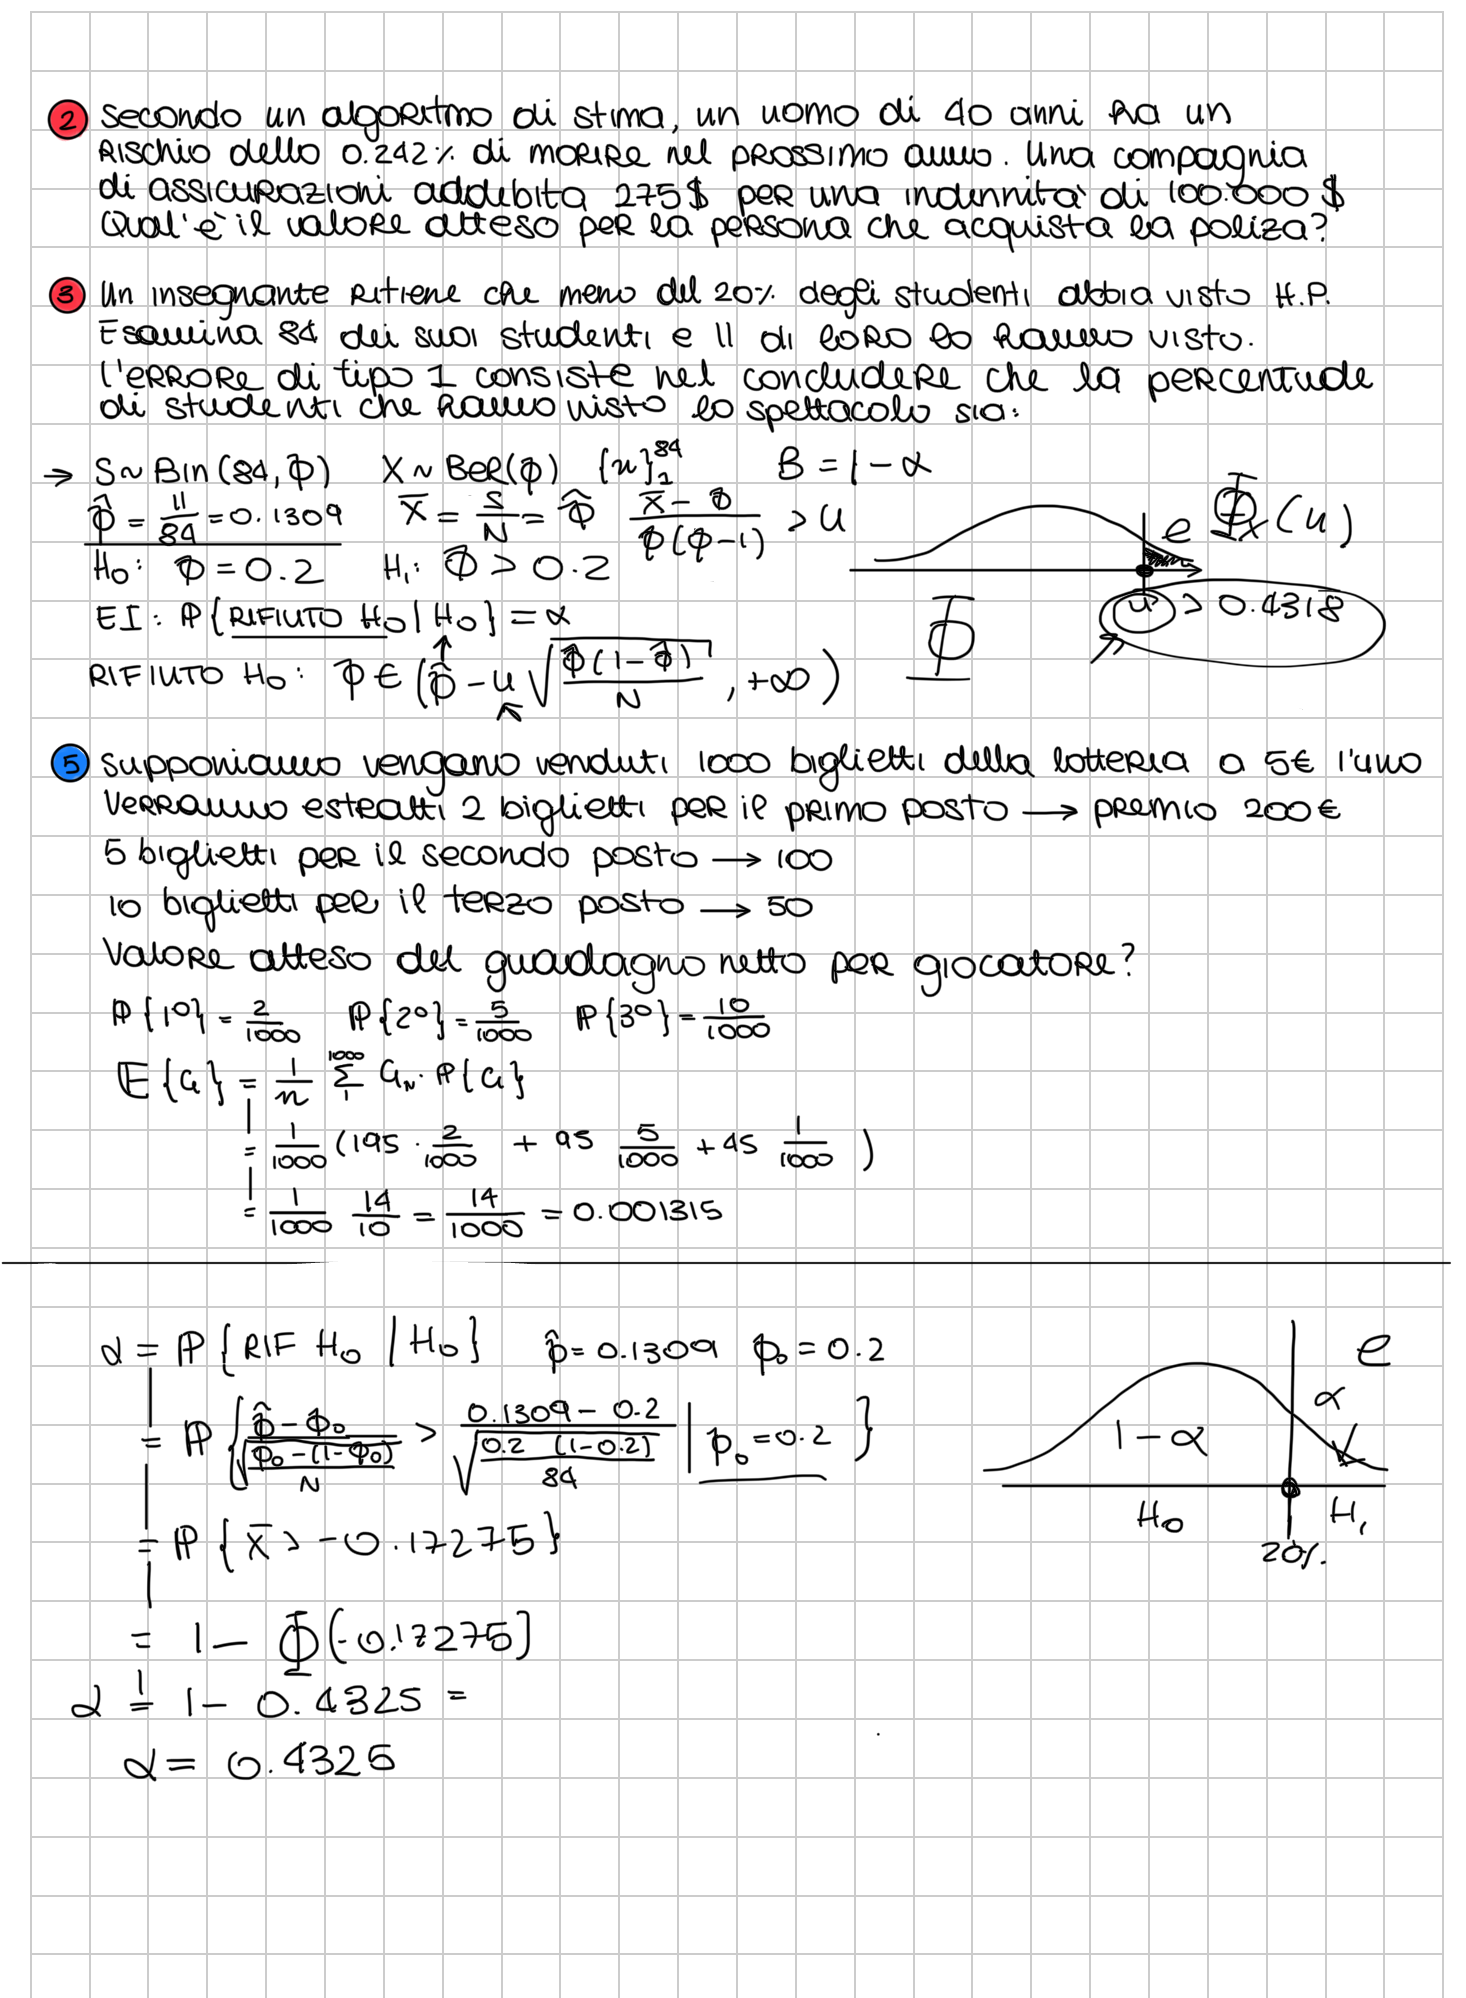 2 Secondo un algoritmo di stima, un uomo di 40 anni ha un
rischio dello 0.242% di morire nel prossimo anno. Una compagnia
di assicurazioni addebita 275$ per una indennità di 100.000 $
Qual'è il valore atteso per la persona che acquista la poliza?
3 Un insegnante ritiene che meno del 20% degli studenti abbia visto H.P.
Esamina 84 dei suoi studenti e 11 di loro lo hanno visto.
L'errore di tipo 1 consiste nel concludere che la percentuale
di studenti che hanno visto lo spettacolo sia:
→ S ~ Bin(84, p) X ~ Ber(p) {x}₁⁸⁴ B = 1 - α
p̂ = 11/84 = 0.1309 X̄ = S/N = p̂ (X̄ - p)/(p(p-1)) > u e Φₓ(u)
H₀: p = 0.2 H₁: p > 0.2
u > 0.4318
EI: ℙ{RIFIUTO H₀ | H₀} = α
Φ
RIFIUTO H₀: p ∈ (p̂ - u √(p̂(1-p̂)/N), +∞)
5 Supponiamo vengano venduti 1000 biglietti della lotteria a 5€ l'uno
Verranno estratti 2 biglietti per il primo posto → premio 200€
5 biglietti per il secondo posto → 100
10 biglietti per il terzo posto → 50
Valore atteso del guadagno netto per giocatore?
ℙ{1°} = 2/1000 ℙ{2°} = 5/1000 ℙ{3°} = 10/1000
𝔼{G} = 1/n Σ₁¹⁰⁰⁰ Gₙ · ℙ{G}
= 1/1000 (195 · 2/1000 + 95 5/1000 + 45 1/1000)
= 1/1000 14/10 = 14/1000 = 0.001315
α = ℙ{RIF H₀ | H₀} p̂ = 0.1309 p₀ = 0.2
e
α
= ℙ{(p̂ - p₀)/√((p₀-(1-p₀))/N) > (0.1309 - 0.2)/√((0.2 (1-0.2))/84) | p₀ = 0.2}
1 - α
H₀ H₁
= ℙ{X̄ > -0.17275}
20%.
= 1 - Φ(-0.17275)
α = 1 - 0.4325 =
α = 0.4325